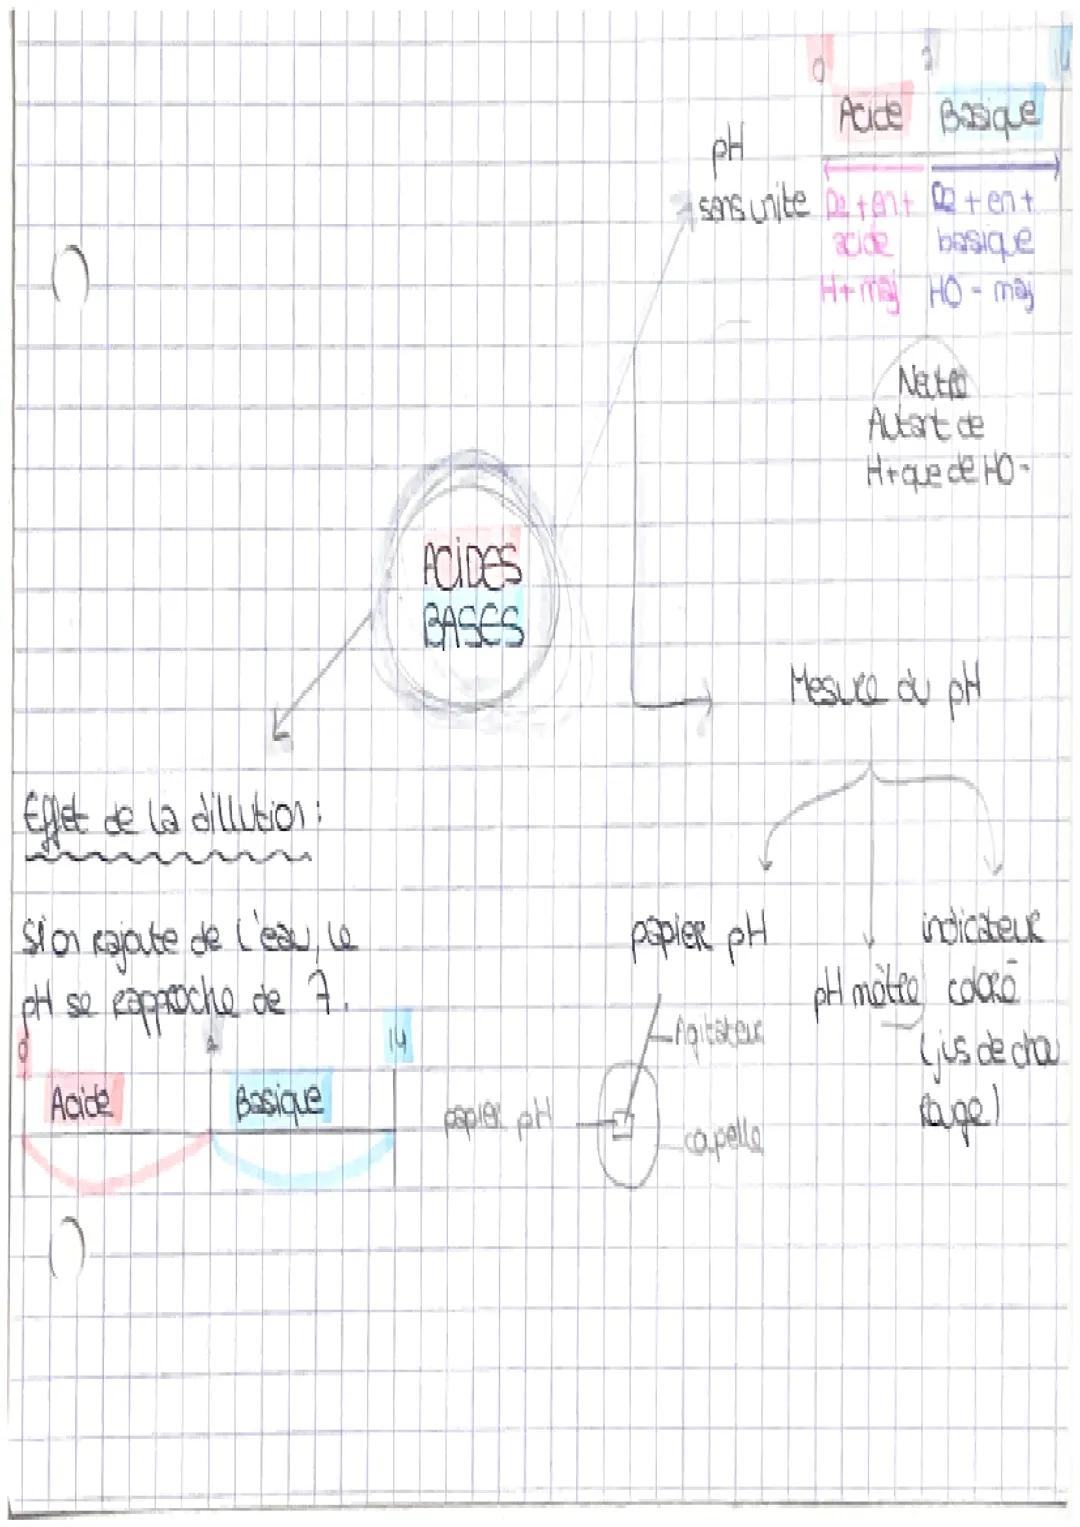 0
Acide Basique
pH
sans unité
De + en +
acide
H+ maj
De + en +
basique
HO - maj
Neutre
Autant de
H+ que de HO-
ACIDES
BASES
Mesure du pH
Effet de la dillution :
Si on rajoute de l'eau, le
pH se rapproche de 7.
0 14
Acide Basique
papier pH
pH mètre
indicateur
coloré
(jus de chou
Rouge)
Agitateur
papier pH
capelle